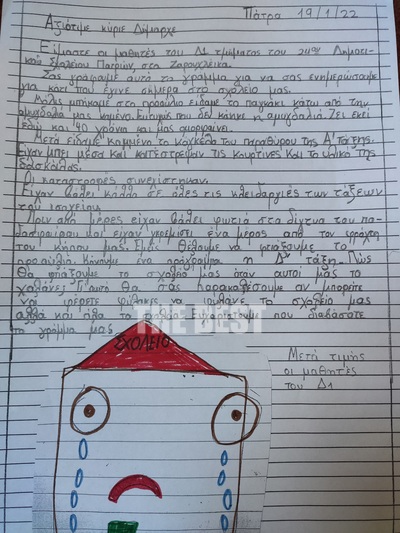 Πάτρα 19/1/22
Αξιότιμε κύριε Δήμαρχε
Είμαστε οι μαθητές του Δ1 τμήματος του 24ου Δημοτι-
κού Σχολείου Πατρών, στα Ζαρουχλέικα.
Σας γράφουμε αυτό το γράμμα για να σας ενημερώσουμε
για κάτι που έγινε σήμερα στο σχολείο μας.
Μόλις μπήκαμε στο προαύλιο είδαμε το παγκάκι κάτω από την
αμυγδαλιά μας καμένο. Ευτυχώς που δεν κάηκε η αμυγδαλιά. Ζει εκεί
εδώ και 40 χρόνια και μας ομορφαίνει.
Μετά είδαμε κομμένα τα κάγκελα του παραθύρου της Α' Τάξης.
Είχαν μπει μέσα και κατέστρεψαν τις κουρτίνες και τα υλικά της
δασκάλας.
Οι καταστροφές συνεχίστηκαν.
Είχαν βάλει κόλλα σε όλες τις κλειδαριές των τάξεων
του ισογείου.
Πριν από μέρες είχαν βάλει φωτιά στα δίχτυα του πο-
δοσφαίρου και είχαν γκρεμίσει ένα μέρος από τον φράχτη
του κήπου μας. Εμείς θέλουμε να φτιάξουμε το
προαύλιο. Κάνουμε ένα πρόγραμμα η Δ' τάξη. Πώς
θα φτιάξουμε το σχολείο μας όταν αυτοί μας το
χαλάνε; Γι'αυτό θα σας παρακαλέσουμε αν μπορείτε
να φέρετε φύλακες να φυλάνε το σχολείο μας
αλλά και όλα τα σχολεία. Ευχαριστούμε που διαβάσατε
το γράμμα μας.
THE BEST
ΣΧΟΛΕΙΟ
Μετά τιμής
οι μαθητές
του Δ1